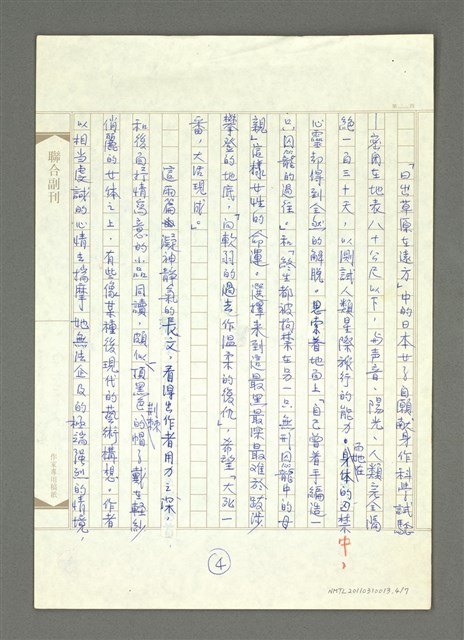 「日出草原在遠方」中的日本女子自願獻身作科學試驗
—窩居在地表八十公尺以下，與声音、陽光、人類完全隔
絕一百三十天，以測試人類星際旅行的能力。身体的囚禁中，
而她在
心靈却得到全然的解脫。思索着地面上「自己曾着手編造一
只囚籠的過往」和「終生都被拘禁在另一只無形囚籠中的母
親」這樣女性的命運，選擇來到這最黑最深最难於跋涉
攀登的地底，「向軟弱的過去作温柔的後仇」，希望「大死一
番，大活現成。」
這兩篇凝神靜氣的長文，看得出作者用力之深，
和後面三種情寫意的小品同讀，頗似一頂黑色的帽子戴在輕紗
荊棘
俏麗的女体之上，有些像某種後現代的藝術構想。作者
以相当虔誠的心情去揣摩她無法企及的極端强烈的情境，
聯合副刊
作家專用稿紙
第 頁
4
NMTL20110310013.4/7